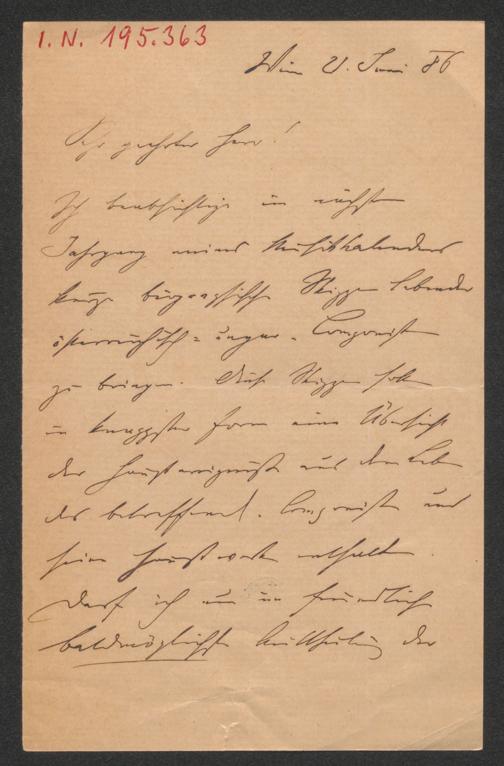 I. N. 195.363
Wien 21. Juni 86
Sehr geehrter Herr!
Ich beabsichtige im nächsten
Jahrgang meines Musikkalenders
kurze biographische Skizzen lebender
österreichisch-ungar. Componisten
zu bringen. Diese Skizzen sollen
in knappster Form eine Übersicht
der Hauptereignisse aus dem Leben
des betreffend. Componisten und
seine Hauptwerke enthalten.
Darf ich um freundliche
baldmöglichste Mittheilung der